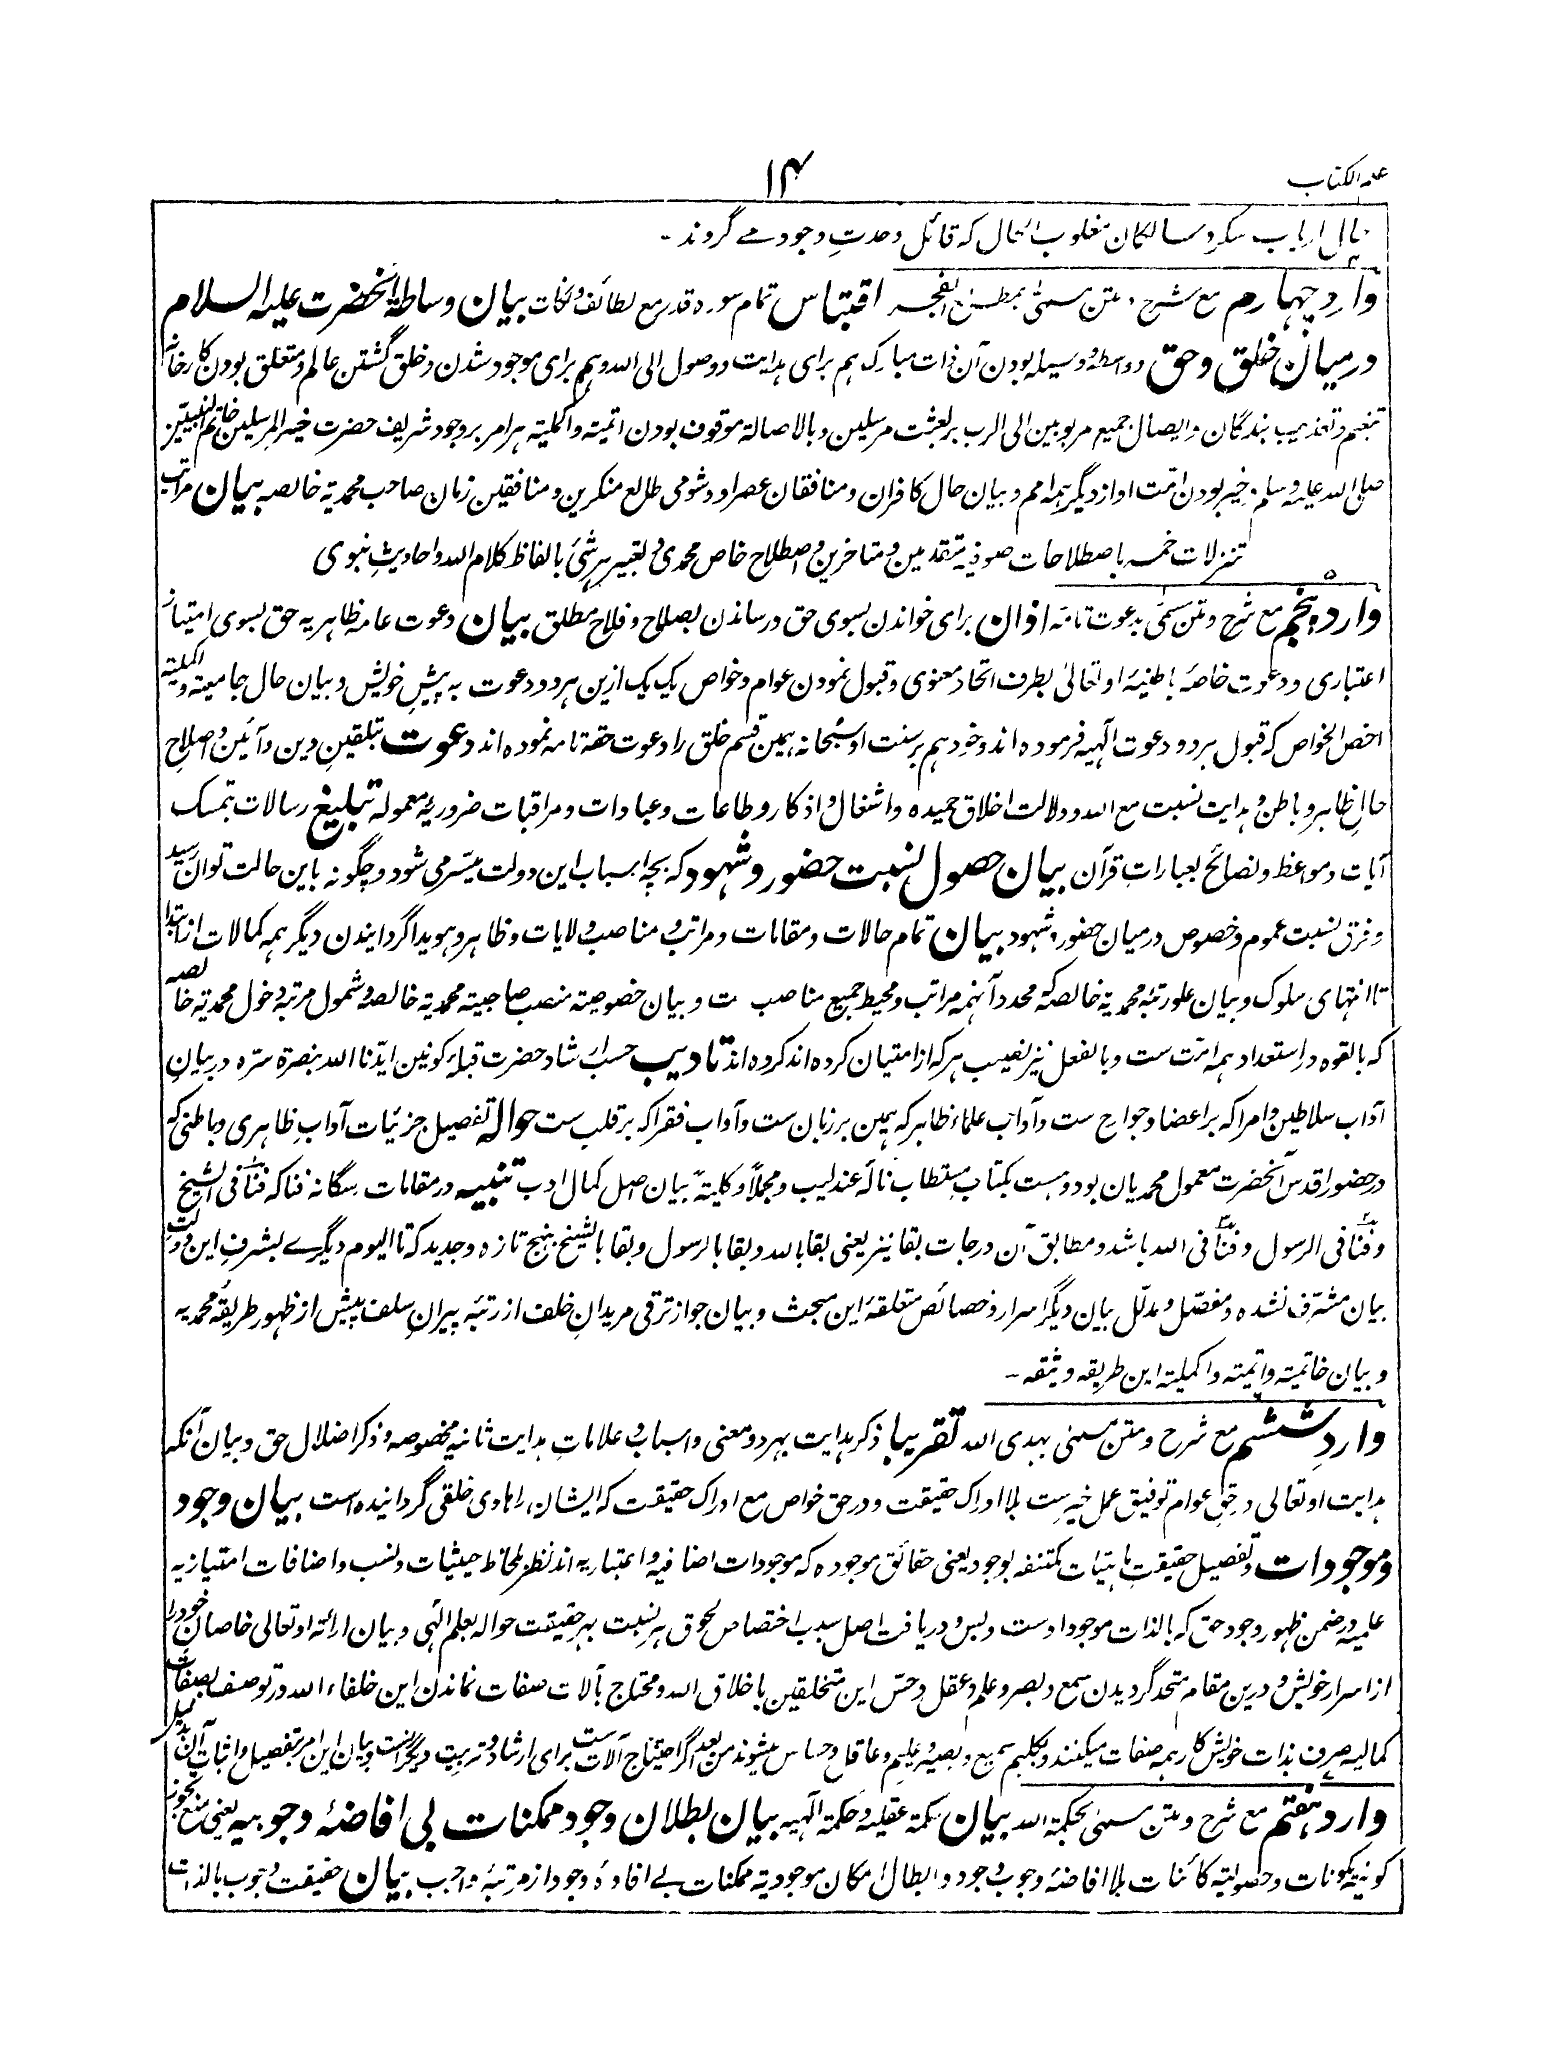 علم الکتاب
۱۴
حال ارباب سکر و سالکان مغلوب الحال که قائل وحدتِ وجود مے گروند ۔
واردِ چهارم مع شرح و متن مسمیٰ بمطلع الفجر اقتباس تمام سوره قدر مع لطائف و نکات بیان وساطة آنحضرت علیه السلام
درمیان خلق وحق و واسطه و وسیله بودن آن ذات مبارک هم برای هدایت و وصول الی الله و هم برای موجود شدن و خلق گشتن عالم و متعلق بودن کارخانه
تنعیم و تعذیب بندگان و ایصال جمیع مربوبین الی الرب بر بعثت مرسلین و بالاصالة موقوف بودن اتمیته و اکملیته هر امر بر وجود شریف حضرت خیر المرسلین خاتم النبیین
صلی الله علیه وسلم و خیر بودن امت او از دیگر همه امم و بیان حال کافران و منافقان عصر او و شومی طالع منکرین و منافقین زمان صاحب محمدیة خالصه بیان مراتب
تنزلات خمسه باصطلاحات صوفیه متقدمین و متاخرین و اصطلاح خاص محمدی و تعبیر هر شئ بالفاظ کلام الله و احادیثِ نبوی
واردِ پنجم مع شرح و متن مسمّی بدعوت تامه اذان برای خواندن بسوی حق و رساندن بصلاح و فلاح مطلق بیان دعوت عامه ظاهریه حق بسوی امتیاز
اعتباری و دعوت خاصهٔ باطنیهٔ او تعالیٰ بطرف اتحاد معنوی و قبول نمودن عوام و خواص یک یک ازین هر دو دعوت به پیشِ خویش و بیان حال جامعیته و اکملیته
اخص الخواص که قبول هر دو دعوت آلهیه فرموده اند و خود هم بر سنت او سبحانه همین قسم خلق را دعوت حقه تامه نموده اند دعوت بتلقینِ دین و آئین و اصلاحِ
حالِ ظاهر و باطن و هدایت نسبت مع الله و دلالت اخلاق حمیده و اشغال و اذکار و طاعات و عبادات و مراقبات ضروریهٔ معموله تبلیغ رسالات بتمسک
آیات و مواعظ و نصائح بعباراتِ قرآن بیان حصول نسبت حضور و شهود که بچه اسباب این دولت میسّر می شود و چگونه باین حالت توان رسید
و فرق نسبت عموم و خصوص درمیان حضور و شهود بیان تمام حالات و مقامات و مراتب و مناصب و لایات و ظاهر و هویدا گردانیدن دیگر همه کمالات از ابتدا
تا انتهای سلوک و بیان علو رتبهٔ محمدیة خالصه که محدد آنهمه مراتب و محیط جمیع مناصب ست و بیان خصوصیة منصب صاحبیته محمدیة خالصه و شمول مرتبهٔ دخول محمدیة خالصه
که بالقوه در استعداد همه امّت ست و بالفعل نیز نصیب هر که از امتیان کرده اند کرده اند تادیب حسب ارشاد حضرت قبلهٔ کونین ایّدنا الله بنصرة سرّه در بیانِ
آداب سلاطین و امرا که بر اعضا و جوارح ست و آدابَ علماء ظاهر که همین بر زبان ست و آداب فقرا که بر قلب ست حواله تفصیل جزئیات آدابِ ظاهری و باطنی که
در حضورِ اقدس آنحضرت معمول محمدیان بود و هست بکتاب مستطاب نالهٔ عندلیب و مجملاً و کلیتهً بیان اصل کمال ادب تنبیه در مقامات سگانه فنا که فنا فی الشیخ
و فنا فی الرسول و فنا فی الله باشد و مطابق آن درجات بقا نیز یعنی بقا بالله و بقا بالرسول و بقا بالشیخ بنهج تازه و جدید که تا الیوم دیگرے بشرفِ این دولتِ
بیان مشرّف نشده و مفصّل و مدلّل بیان دیگر اسرار و خصائص متعلقهٔ این مبحث و بیان جواز ترقی مریدانِ خلف از رتبهٔ پیرانِ سلف پیش از ظهور طریقهٔ محمدیه
و بیان خاتمیته و اتمیته و اکملیته این طریقه وثیقه ۔
واردِ ششم مع شرح و متن مسمیٰ بهدی الله تقریباً ذکر هدایت بهر دو معنی و اسباب و علاماتِ هدایت ثانیه مخصوصه و ذکر اضلال حق و بیان آنکه
هدایت او تعالی در حقِ عوام توفیق عمل خیرست بلا ادراک حقیقت و در حق خواص مع ادراک حقیقت که ایشان را هادی خلقی گردانیده است بیان وجود
و موجودات و تفصیل حقیقتِ ماهیّات مکتنفه بوجود یعنی حقائق موجوده که موجودات اضافیه و اعتباریه اند نظر بلحاظ حیثیات و نسب و اضافات امتیازیه
علمیه در ضمن ظهور وجود حق که بالذات موجود اوست و بس و دریافت اصل سبب اختصاص لحوق هر نسبت بهر حقیقت حواله بعلم الٰهی و بیان ارائه او تعالی خاصان خود را
از اسرار خویش و درین مقام متحد گردیدن سمع و بصر و علم و عقل و حس این متخلقین باخلاق الله و محتاج بآلات صفات نماندن این خلفاء الله در توصف بصفات
کمالیه صرف بذات خویش کار همه صفات میکنند و بکلهم سمیع و بصیر و علیم و عاقل و حساس میشوند من بعد اگر احتیاج آلات ست برای ارشاد و تربیت دیگرانست و بیان این امر بتفصیل و اثبات آن بدلیل
واردِ هفتم مع شرح و متن مسمیٰ بحکمة الله بیان حکمة عقلیه و حکمة الٰهیه بیان بطلان وجود ممکنات بی افاضهٔ وجوبیه یعنی منع تجویز
کونیته مکونات و حصولیته کائنات بلا افاضهٔ وجوب وجود و ابطالِ امکان موجودیة ممکنات بے افادهٔ وجود از مرتبهٔ واجب بیان حقیقت وجوب بالذات